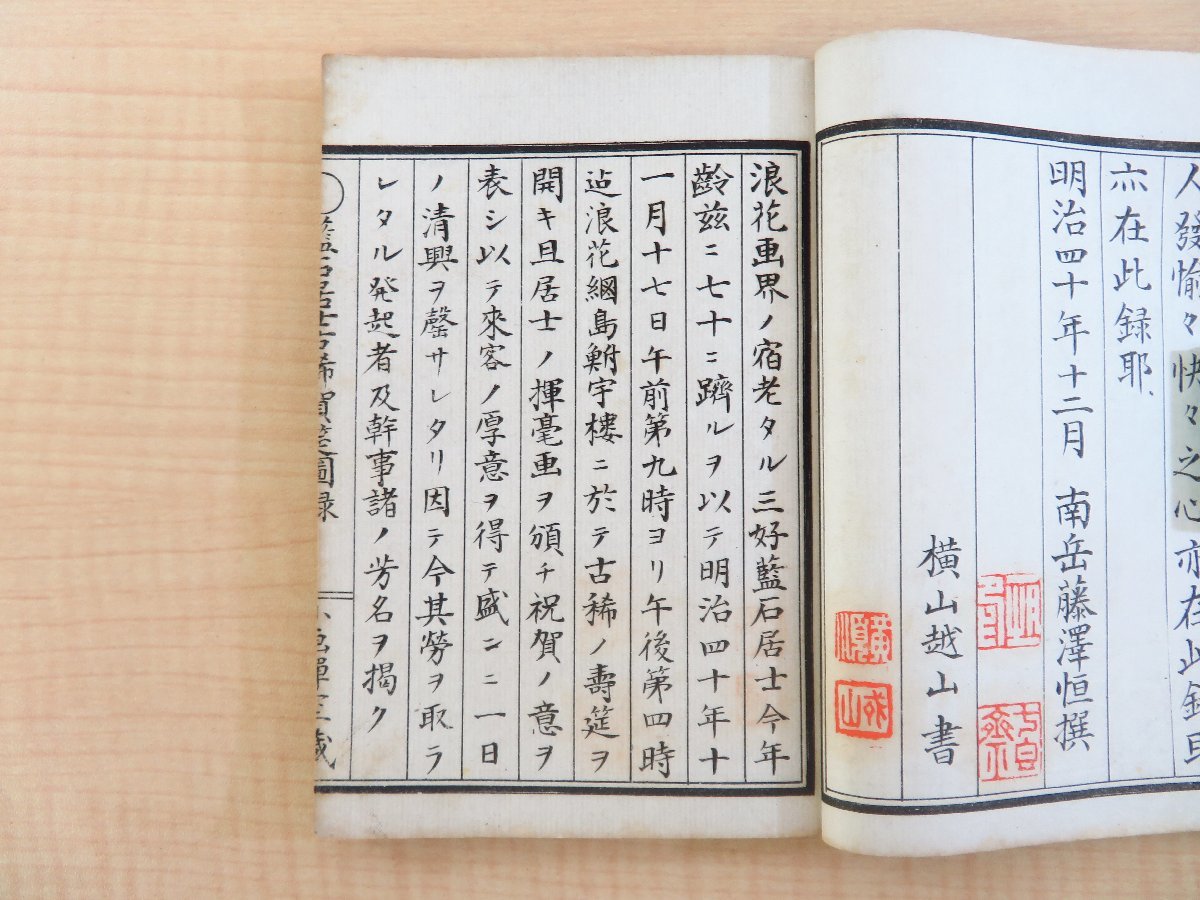 人發愉々快々之心亦在此録
亦在此録耶、
明治四十年十二月 南岳藤澤恒撰
橫山越山書
浪花畫界ノ宿老タル三好藍石居士今年
齡玆ニ七十ニ躋ルヲ以テ明治四十年十
一月十七日午前第九時ヨリ午後第四時
迠浪花網島鮒宇樓ニ於テ古稀ノ壽筵ヲ
開キ且居士ノ揮毫畫ヲ頒チ祝賀ノ意ヲ
表シ以テ來客ノ厚意ヲ得テ盛ンニ一日
ノ清興ヲ罄サレタリ因テ今其勞ヲ取ラ
レタル発起者及幹事諸ノ芳名ヲ揭ク
○藍石居士古稀賀筵圖録